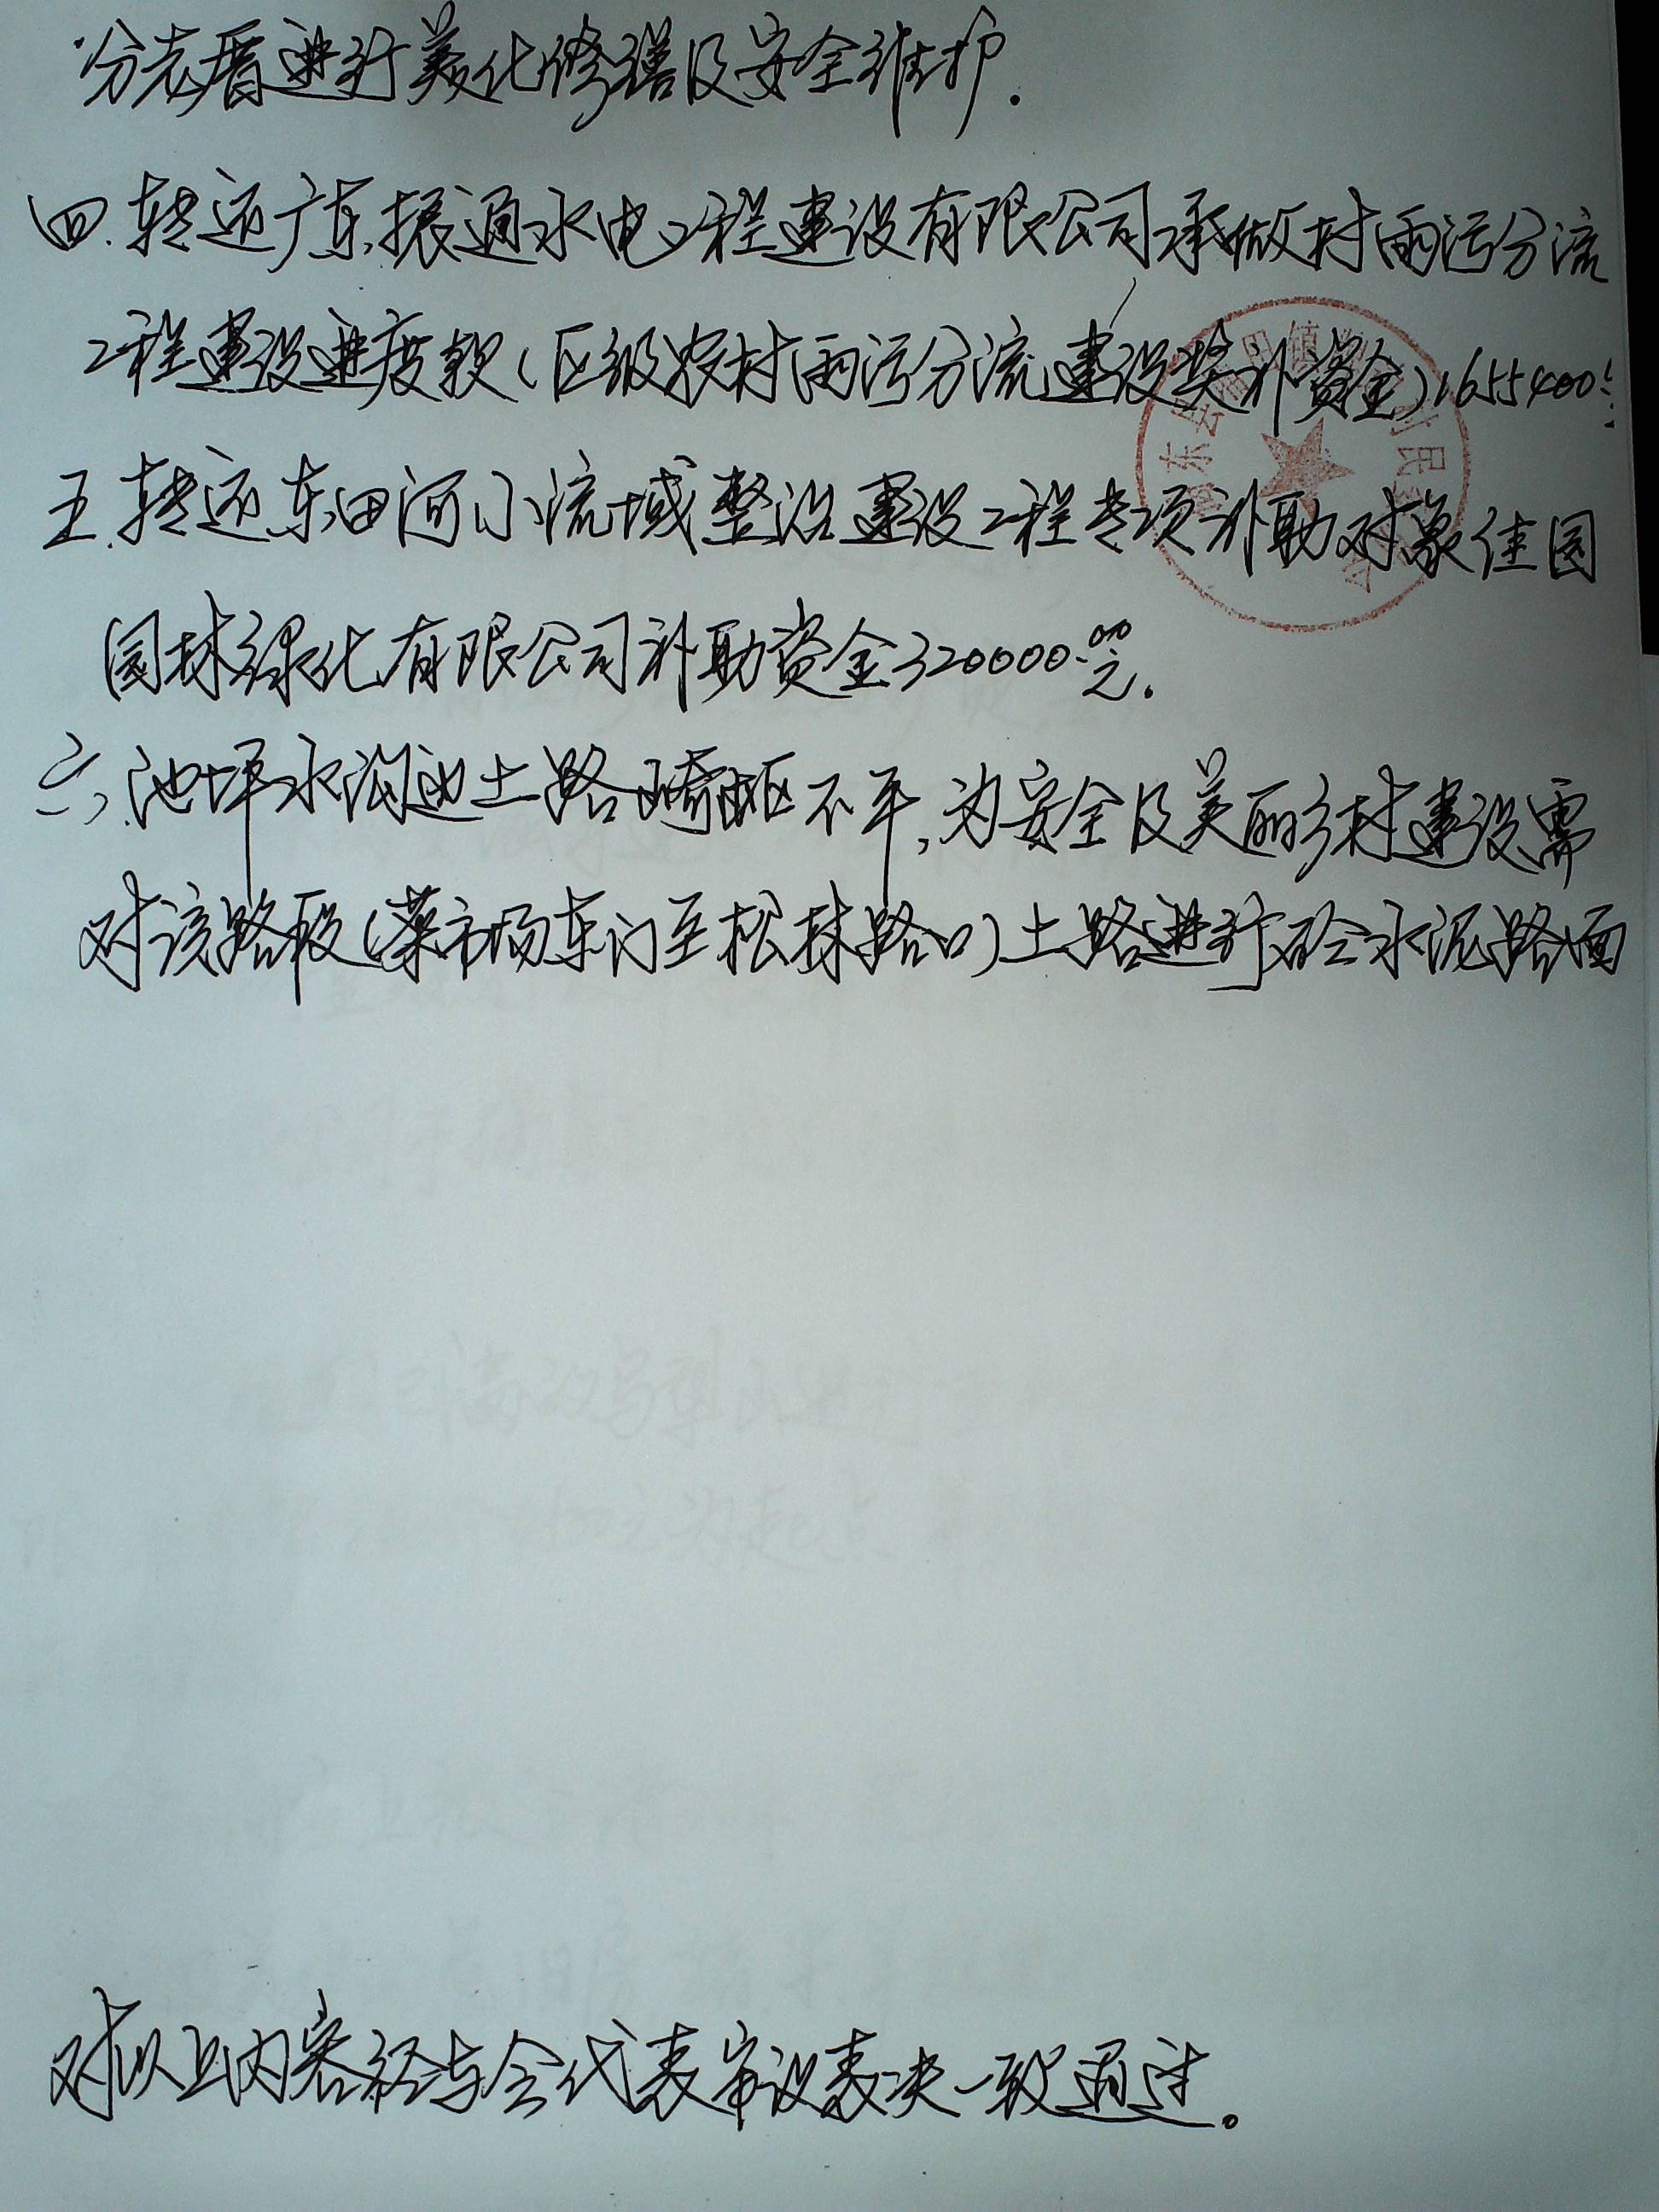 分老厝进行美化修缮及安全维护.
四.转还广东振通水电工程建设有限公司承做村雨污分流
工程建设进度款(区级农村雨污分流建设奖补资金)1655400
五.转还东田河小流域整治建设工程专项补助对象佳园
园林绿化有限公司补助资金320000.00元.
六.池坪水沟边土路崎岖不平,为安全及美丽乡村建设需
对该路段(菜市场东门至松林路口)土路进行砼水泥路面
对以上内容经与会代表审议表决一致通过。